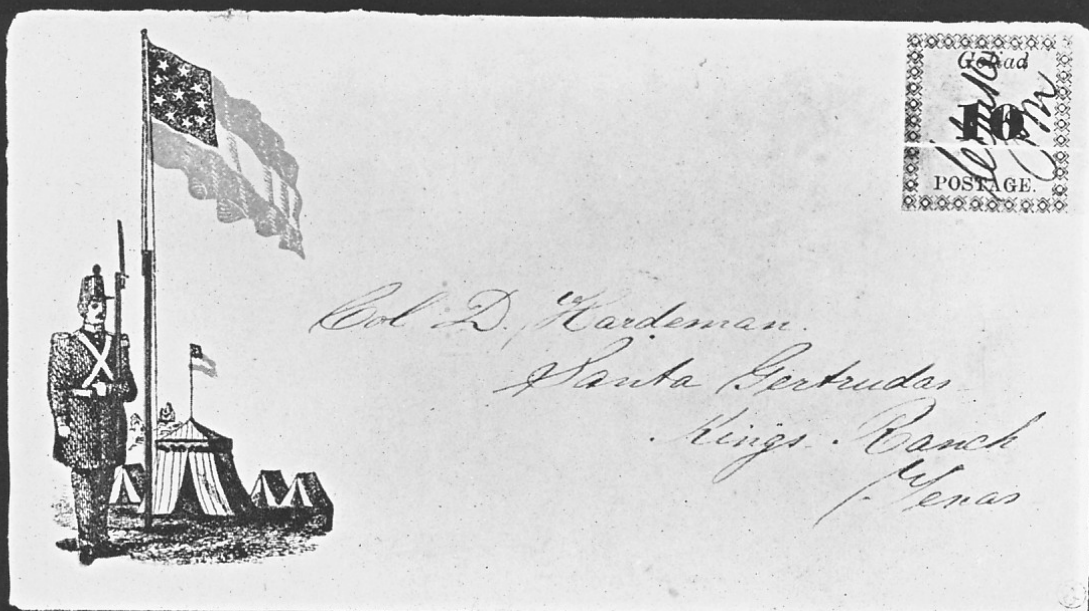 Goliad
10
POSTAGE.
Col D. Hardeman.
Santa Gertrudas
Kings. Ranch
Texas